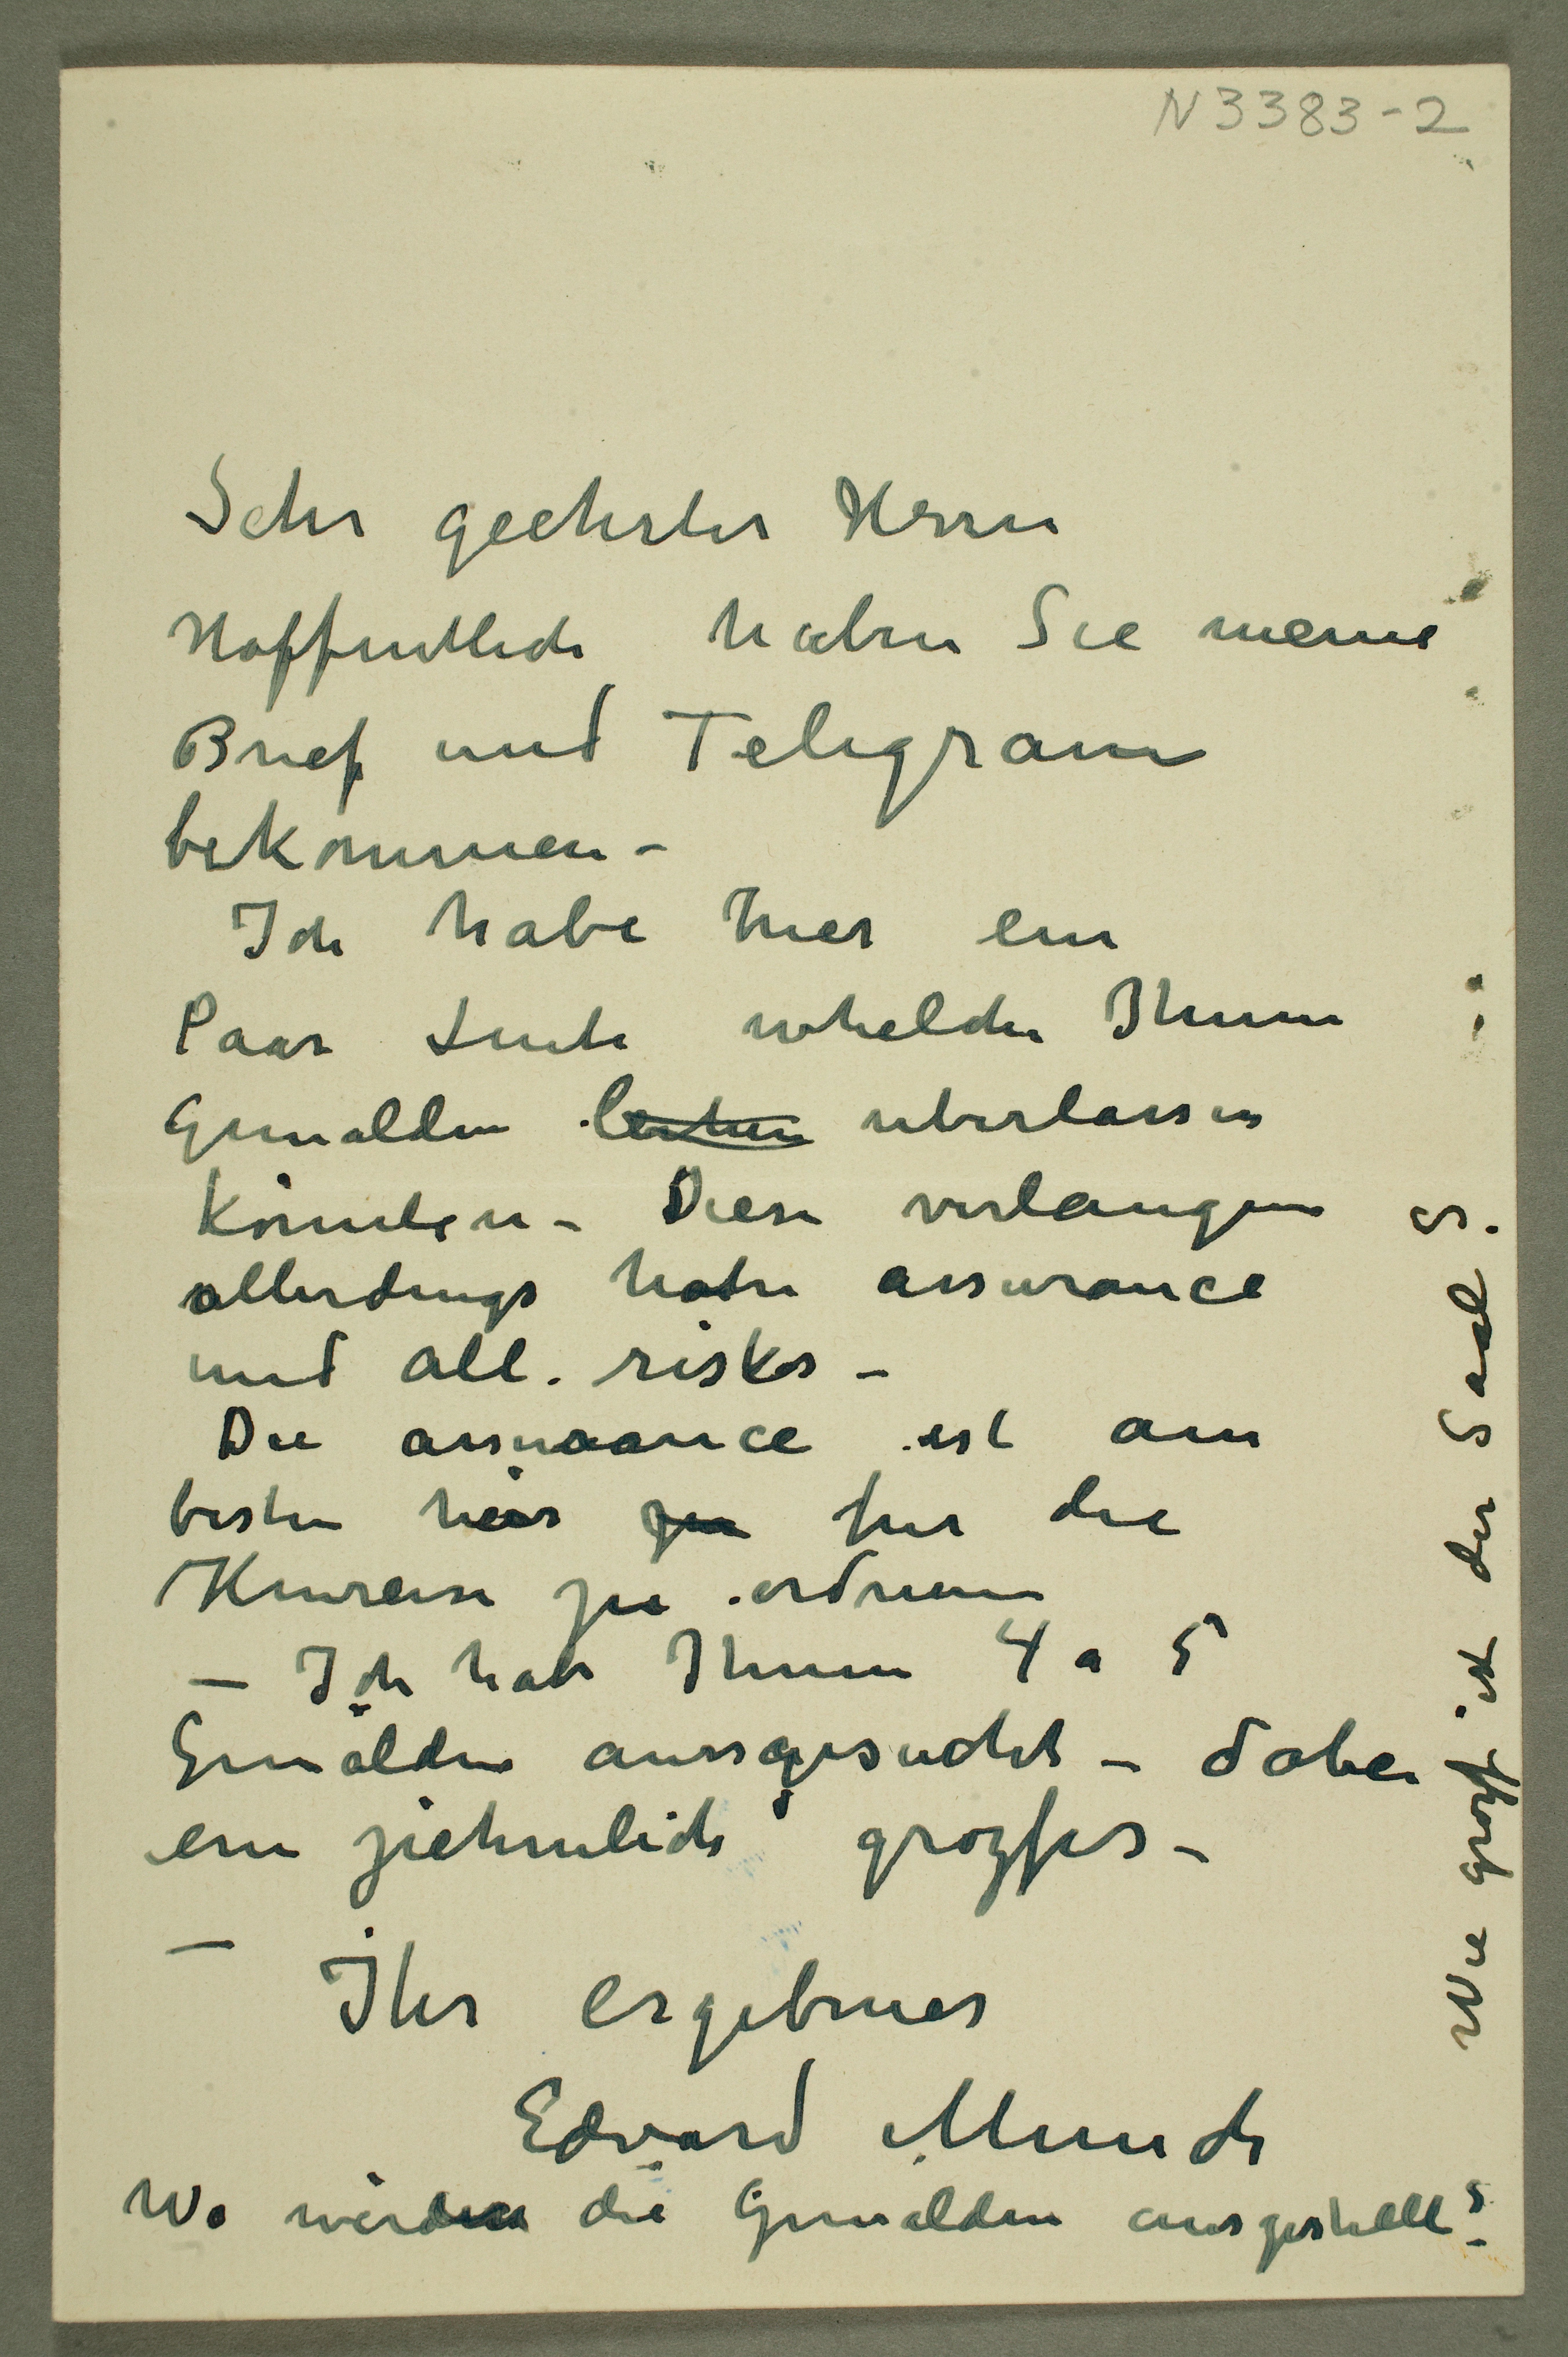 N 3383-2
Sehr geehrter Herrn
Hoffentlich haben Sie meine
Brief und Telegram
bekommen –
Ich habe hier ein
Paar Leute whelche Ihnen
Gemalden leihen uberlassen
könnten – Diese verlangen
allerdings hohe assurance
und all. riskos –
Die assuraance ist am
besten hier zu fur die
Hinreise zu ordnen
– Ich habe Ihnen 4 a 5
Gemälden aussgesucht – dabei
ein ziehmlich grozses –
– Ihr ergebner
Edvard Munch
Wo werden die Gemalden ausgestellt?
Wie grozs ist der Saal